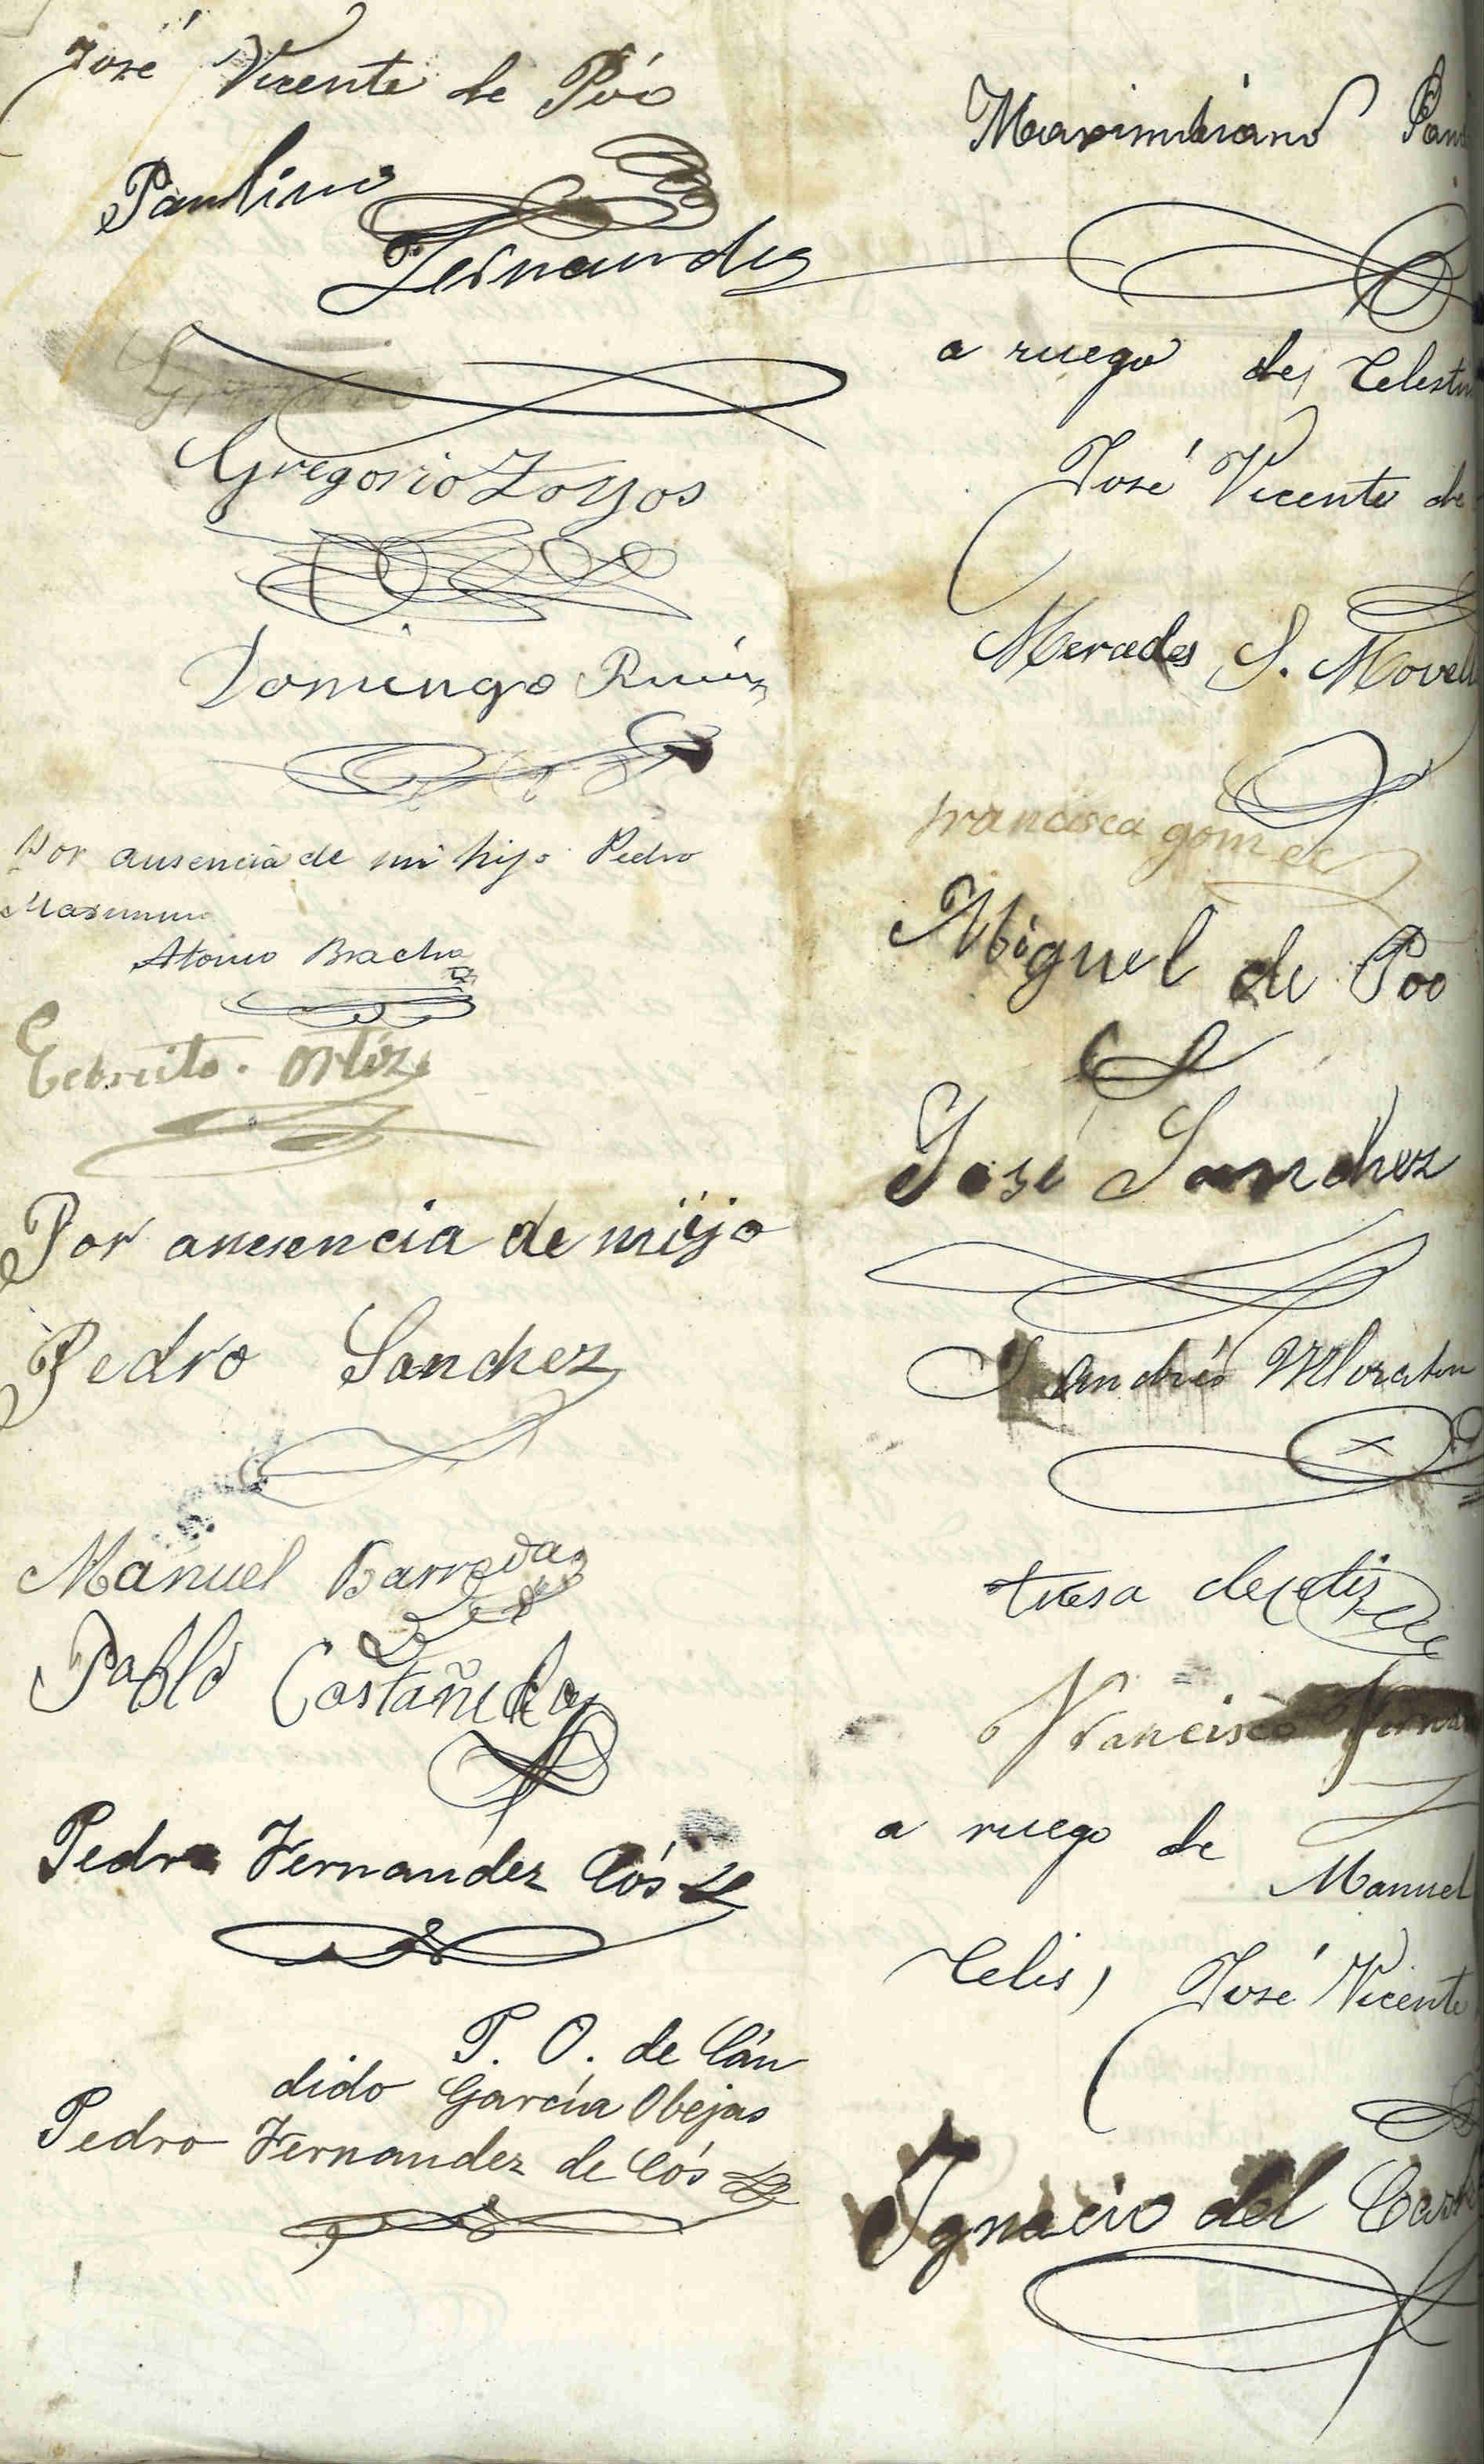 José Vicente de Póo
Paulino
Fernandez
Gregorio Hoyos
Domingo Ruiz
Por ausencia de mi hijo Pedro
Atonio Bracho
Ortiz
Por ausencia de miijo
Pedro Sanchez
Manuel Barreda
Pablo Castañeda
Pedro Fernandez Cós
P. O. de Cán
dido García Obejas
Pedro Fernandez de Cós
Maximiliano
a ruego de
José Vicente de
Mercedes S.
francisca gomez
Miguel de Poo
José Sanchez
Andrés
Francisco
a ruego de
Manuel
Celis, José Vicente
Ygnacio del